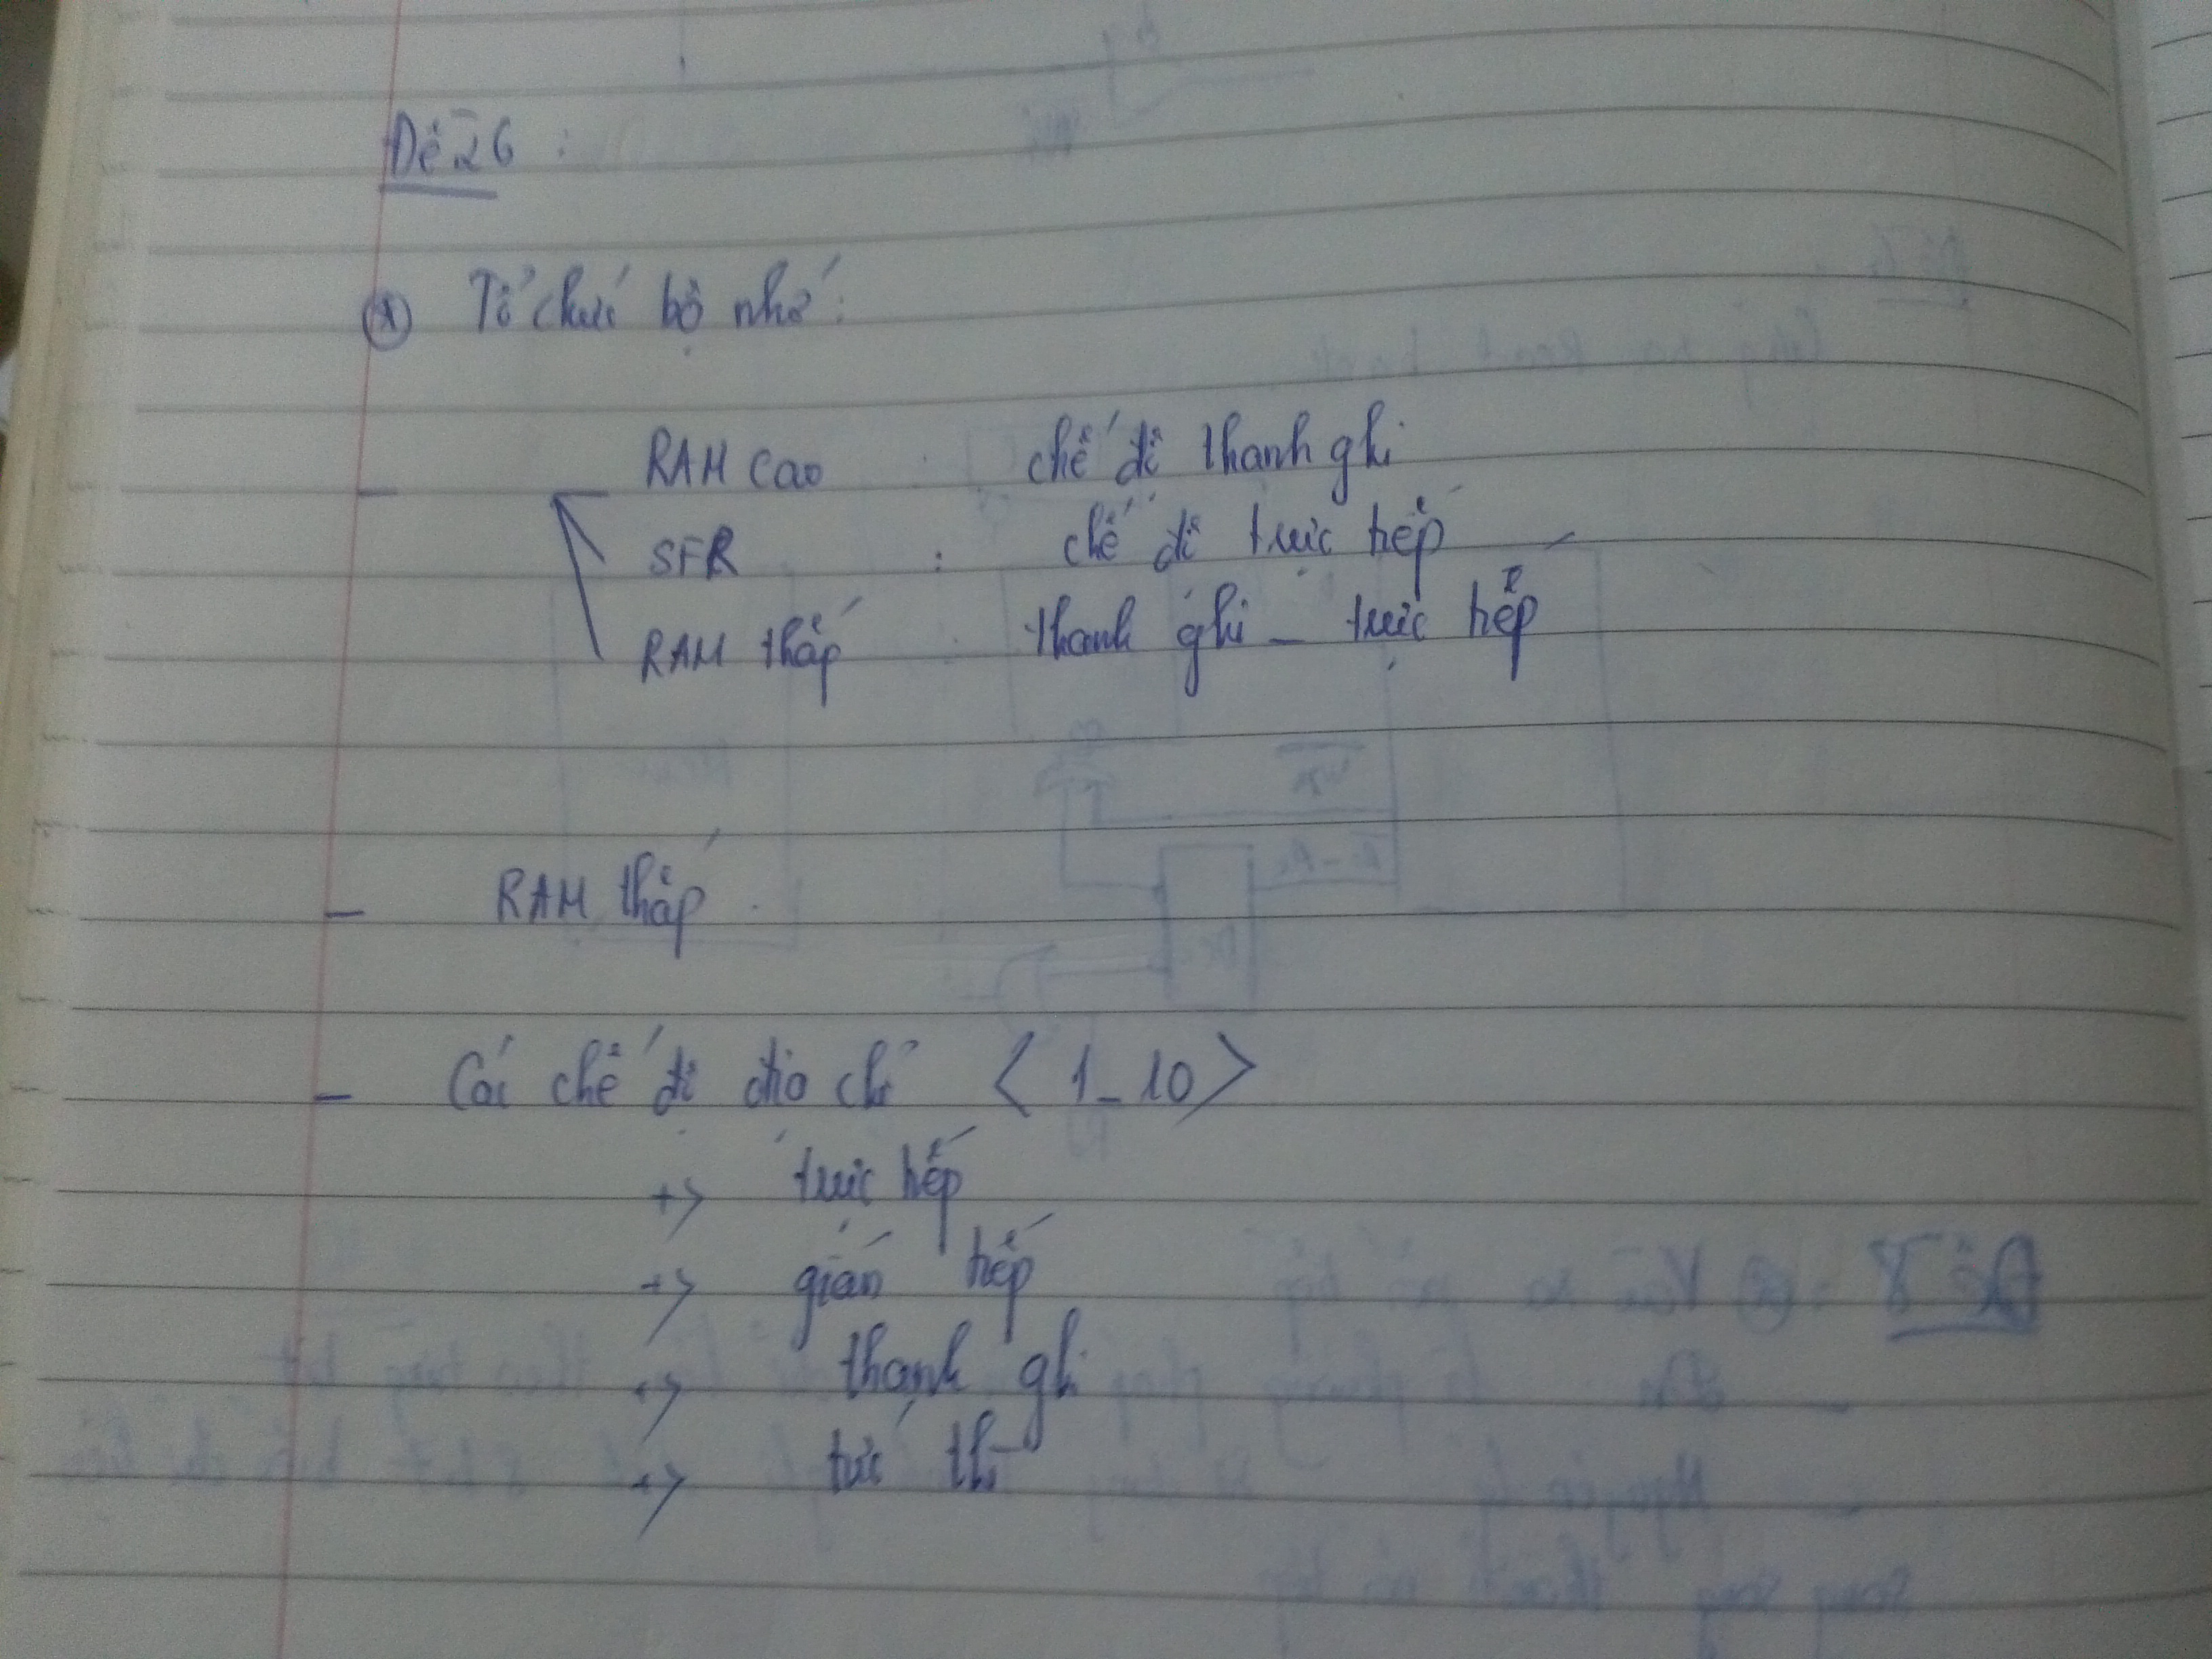 Đề 26 :
* Tổ chức bộ nhớ :
- RAM cao : chế độ thanh ghi
SFR : chế độ trực tiếp
RAM thấp : thanh ghi - trực tiếp
- RAM thấp
- Các chế độ địa chỉ < 1 - 10 >
+> trực tiếp
+> gián tiếp
+> thanh ghi
+> tức thì